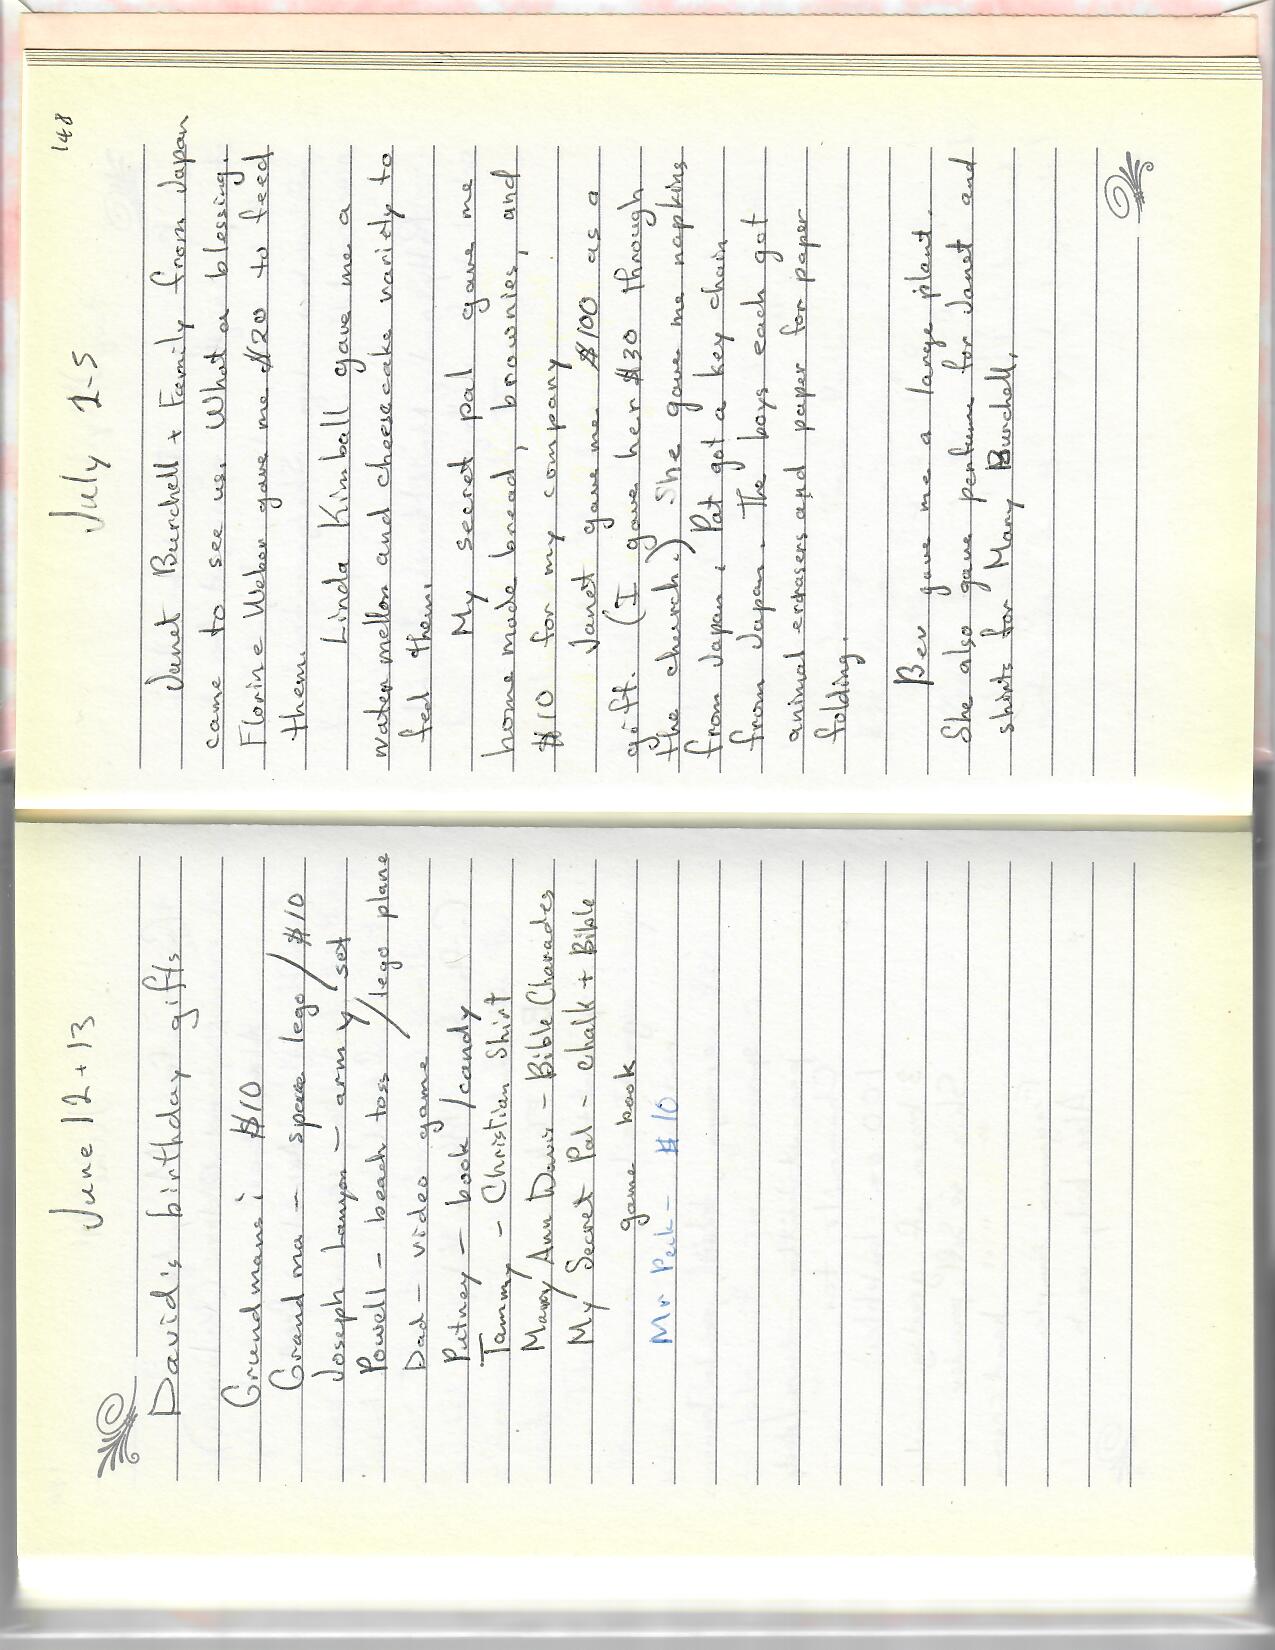 June 12 + 13
David's birthday gifts
Grundmans: $10
Grandma - space lego / $10
Joseph Lanyon - army set
Powell - beach toss / lego plane
Dad - video game
Putney - book / candy
Tammy - Christian Shirt
Mary Ann Davis - Bible Charades
My Secret Pal - chalk + Bible
game book
Mr Peck - $10
148
July 1-5
Janet Burchell + Family from Japan
came to see us. What a blessing.
Florine Weber gave me $20 to feed
them.
Linda Kimball gave me a
water mellon and cheesecake variety to
feed them.
My secret pal gave me
home made bread, brownies, and
$10 for my company
Janet gave me $100 as a
gift. (I gave her $30 through
the church.) She gave me napkins
from Japan. Pat got a key chain
from Japan. The boys each got
animal erasers and paper for paper
folding.
Bev gave me a large plant.
She also gave perfume for Janet and
shirts for Mary Burchell.